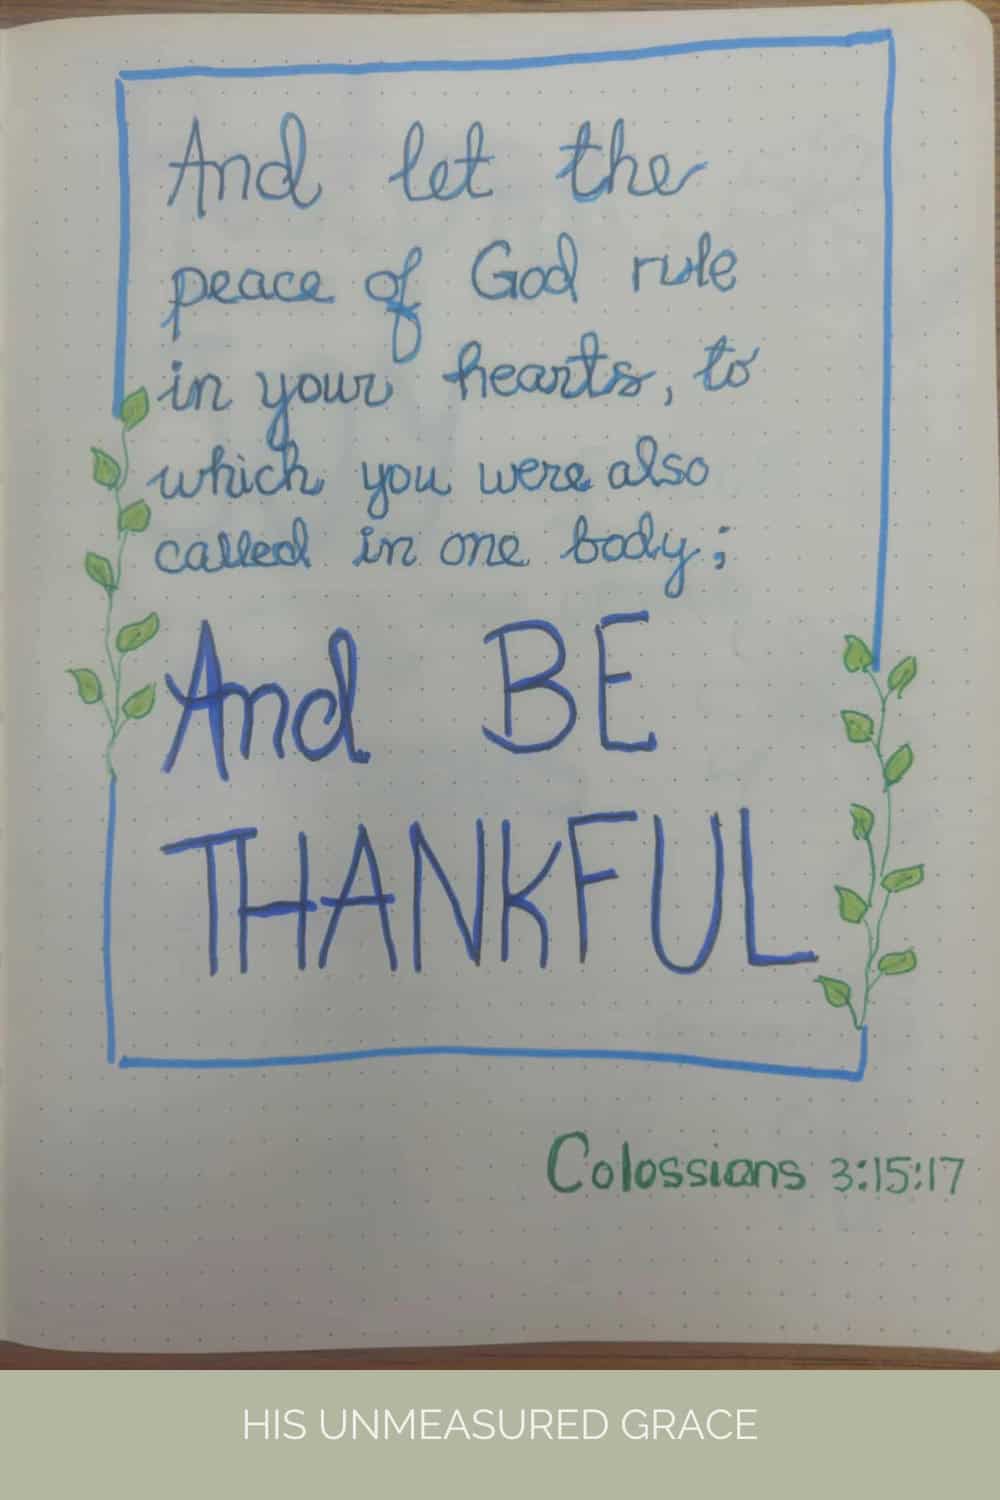 And let the
peace of God rule
in your hearts, to
which you were also
called in one body;
And BE
THANKFUL
Colossians 3:15:17
HIS UNMEASURED GRACE